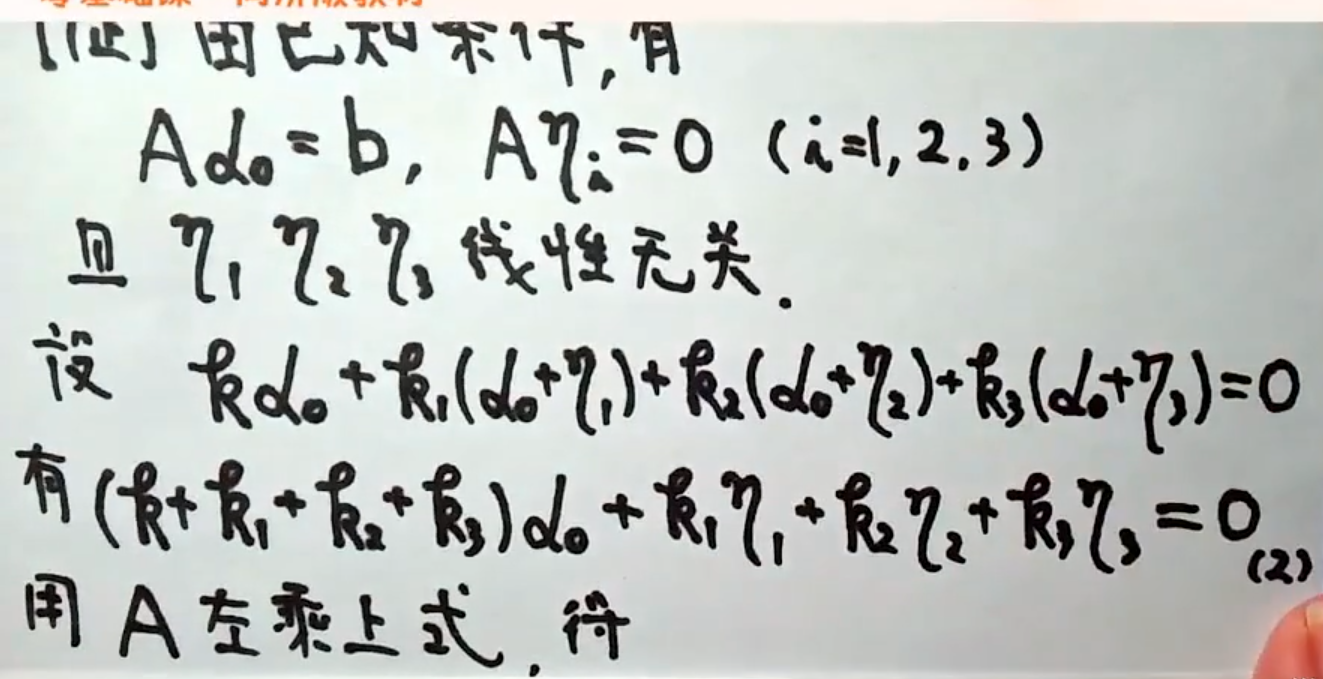 [证] 由已知条件,有
Aα₀=b, Aηᵢ=0 (i=1,2,3)
且 η₁ η₂ η₃ 线性无关.
设 kα₀+k₁(α₀+η₁)+k₂(α₀+η₂)+k₃(α₀+η₃)=0
有 (k+k₁+k₂+k₃)α₀+k₁η₁+k₂η₂+k₃η₃=0 (2)
用 A 左乘上式,得